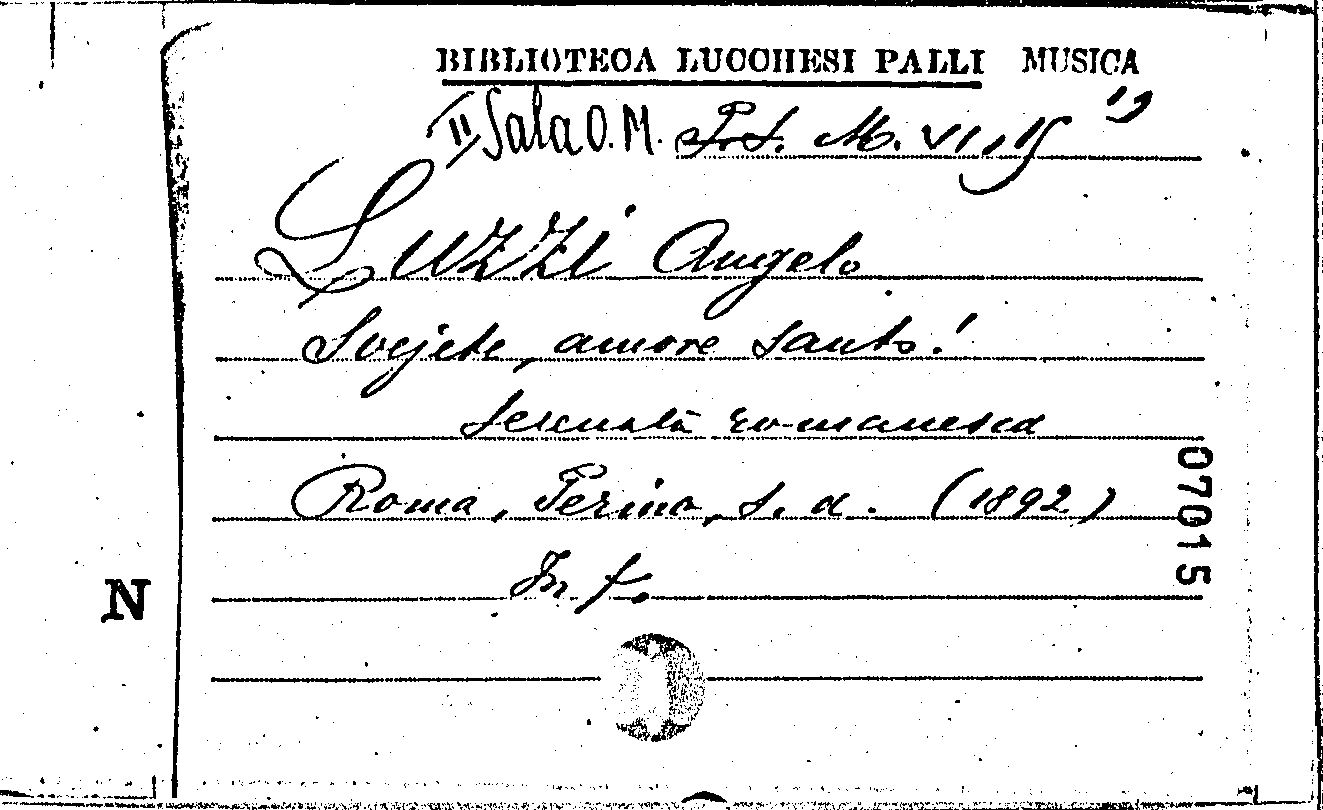 BIBLIOTECA LUCCHESI PALLI MUSICA
II Sala O. M. P.S. M. VI, 15 19
LUZZI Angelo
Svejete, amore santo!
serenata romanesca
Roma, Perino, s. d. (1892)
In f.
07015
N